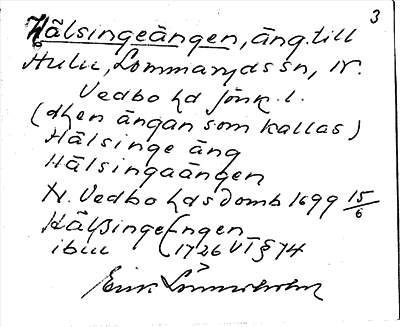 3
Hälsingeängen, äng till
Hulu, Lommaryds sn, N.
Vedbo hd Jönk. l.
(dhen ängan som kallas)
Hälsinge äng
Hälsingaängen
N. Vedbo hds domb 1699 15/6
Hälßinge Engen
ibm 1726 VI § 74
Erik